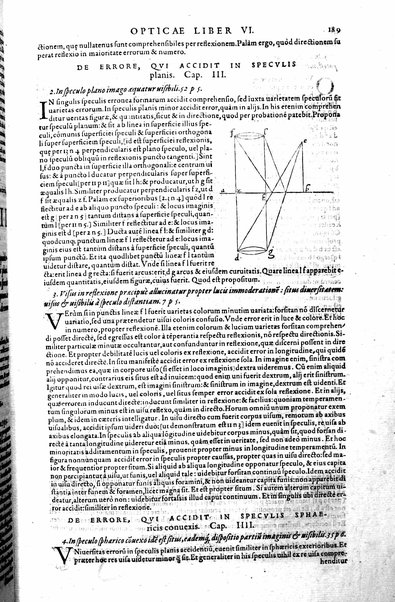 OPTICAE LIBER VI. 189
ctionem, quę nullatenus sunt comprehensibiles per reflexionem. Palàm ergo, quòd directionem su
perat reflexio in maioritate errorum & numero.
DE ERRORE, QVI ACCIDIT IN SPECVLIS
planis. Cap. III.
2. In speculo plano imago æquatur uisibili. 52 p 5.
IN singulis speculis erronea formarum accidit comprehensio, sed iuxta uarietatem speculorũ sit
uarietas errorum. In speculis planis minor accidit error, quàm in alijs. In his etenim comprehen
ditur ueritas figuræ, & quãtitatis, sicut & in directione, quod per probationé patebit. Proponа
tur speculũ planum: & sit a b linea in superficie illius spe-
culi, cõmunis superficiei speculi & superficiei orthogona
li super superficiem speculi, & est superficiei reflexionis,
que per 13 n 4 perpendicularis est plano speculo, uel pla-
no speculũ obliquũ in reflexionis puncto tangenti. ] Sint
l, f duo puncta in superficie illa orthogonali: e centrum ui
sus: & à punctis l ducatur perpendicularis super superfi-
ciem speculi
sit æqualis l h. Similiter producatur perpendicularis f z, ut d
f sit æqualis z f. Palàm ex superioribus [2. 10 n 4] quòd l re
flectatur ad e ab aliquo puncto speculi: & locus imaginis
est g [per 2 n 5] tantum distans à superficie speculi, quan-
tum l [per 11 n 5.] Similiter f reflectetur ad e: & locus ima-
ginis est d [per 2 n 5.] Ducta autẽ linea f l: & similiter g d:
quodcunq; punctum lineæ f l reflectetur ad e: locus ima-
ginis eius est tantùm distans à superficie speculi, quantum
ipsum punctũ. Et ita quodlibet punctũ lineæ f l tantum
uidetur distare, quantùm distat. Vnde si linea f l fuerit re-
cta: erit g d recta: si fuerit arcus: erit g d arcus & eiusdem curuitatis. Quare linea l f apparebit e-
iusdem quantitatis, eiusdem figuræ, cuius fuerit. Quod est propositum.
3. Visio in reflexione præcipuè allucinatur propter lucis immoderationẽ: situs diuersitatem:
uisus & uisibilis à speculo distantiam. 7 p 5.
VErùm si in punctis lineæ f l fuerit uarietas colorum minutim uariatus: forsitan nõ discernetur
uariatio, sed una prætendetur uisui coloris confusio. Vnde error erit in luce & colore. Et hoc
in numero, propter reflexionem. Illa etenim colorum & lucium uarietas forsitan comprehen-
di posset directè, sed egressus est color à temperantia respectu reflexionis, nõ respectu directionis. Si-
militer particulæ minutæ occultantur, aut confunduntur in reflexione, quæ discerni possent in dire
ctione. Et propter debilitatẽ lucis uel coloris ex reflexione, accidet error in longitudine, qui quidẽ
nõ accideret directè. In situ manifestè accidit error ex reflexione sola. In imagine enim, sinistra com
prehendimus ea, quæ in corpore uiso (si esset in loco imaginis) dextra uideremus. Cũ enim aliquid
alij opponitur, contrarius est situs ad inuicem: quod enim uni fuerit dextrum, alij erit sinistrum.
Igitur quod rei uisæ dextrum, est imagini sinistrum: & sinistrum in imagine, dextrum est uidenti. Et
generaliter in modo lucis, uel coloris, uel situs semper error accidit sex sola reflexione. Et in alijs,
quæ errorem inducunt directè: inducunt similiter in reflexione: & facilius: quoniam temperamen-
tum singulorum minus est in uisu reflexo, quàm in directo. Horum omnium unum proponatur exem
plum, & idem in cæteris intelligatur. In uisu directo cum fuerit corpus uisum, remotum ab axibus
uisualibus, accidit ipsum uideri duo: [ut demonstratum est 11 n 3] idem euenit in speculis, re uisa ab
axibus elongata. In speculis ab aliqua longitudine uidebitur corpus minus, quàm sit, quod forsan di-
rectè à tanta longitudine uideretur etiã minus, quàm esset in ueritate, sed non adeò minus. Et hoc
minoritatis additamentum in speculis, prouenit propter minus in longitudine temperamentũ. In
figura accidit manifestè error in speculis propter causas, propter quas in uisu directo: sed ma-
ior & frequentior propter situm. Si aliquid ab aliqua longitudine opponatur speculo, & eius capita
non percipiantur à uisu, ut uel aliquid tale: uidebitur forsitan continuũ speculo. Idem accidet
in uisu directo, si opponatur foramini, & non uideantur capita funis: non apparebit
stantia inter funem & foramen, licet magna sit. Et est propter situm. Si autem alterum caput ui-
deatur, alterum uerò non: uidebitur forsitass illud caput continuum. Et in singulis ubi directè er-
ror accidit: similiter in reflexione.
DE ERRORE, QVI ACCIDIT IN SPECVLIS SPHAE-
ricis conuexis. Cap. IIII.
4. In speculo sphærico cõuexo idẽ est situs, eademq́, dispositio partiũ imaginis & uisibilis. 35 p 6.
VNiuersitas errorum in speculis planis accidentiũ, euenit similiter in sphæricis exterioribus. Et
præter hoc res uisa uidetur minor ea. Et generaliter in his speculis nihil ex re uisa comprehen-
ditur